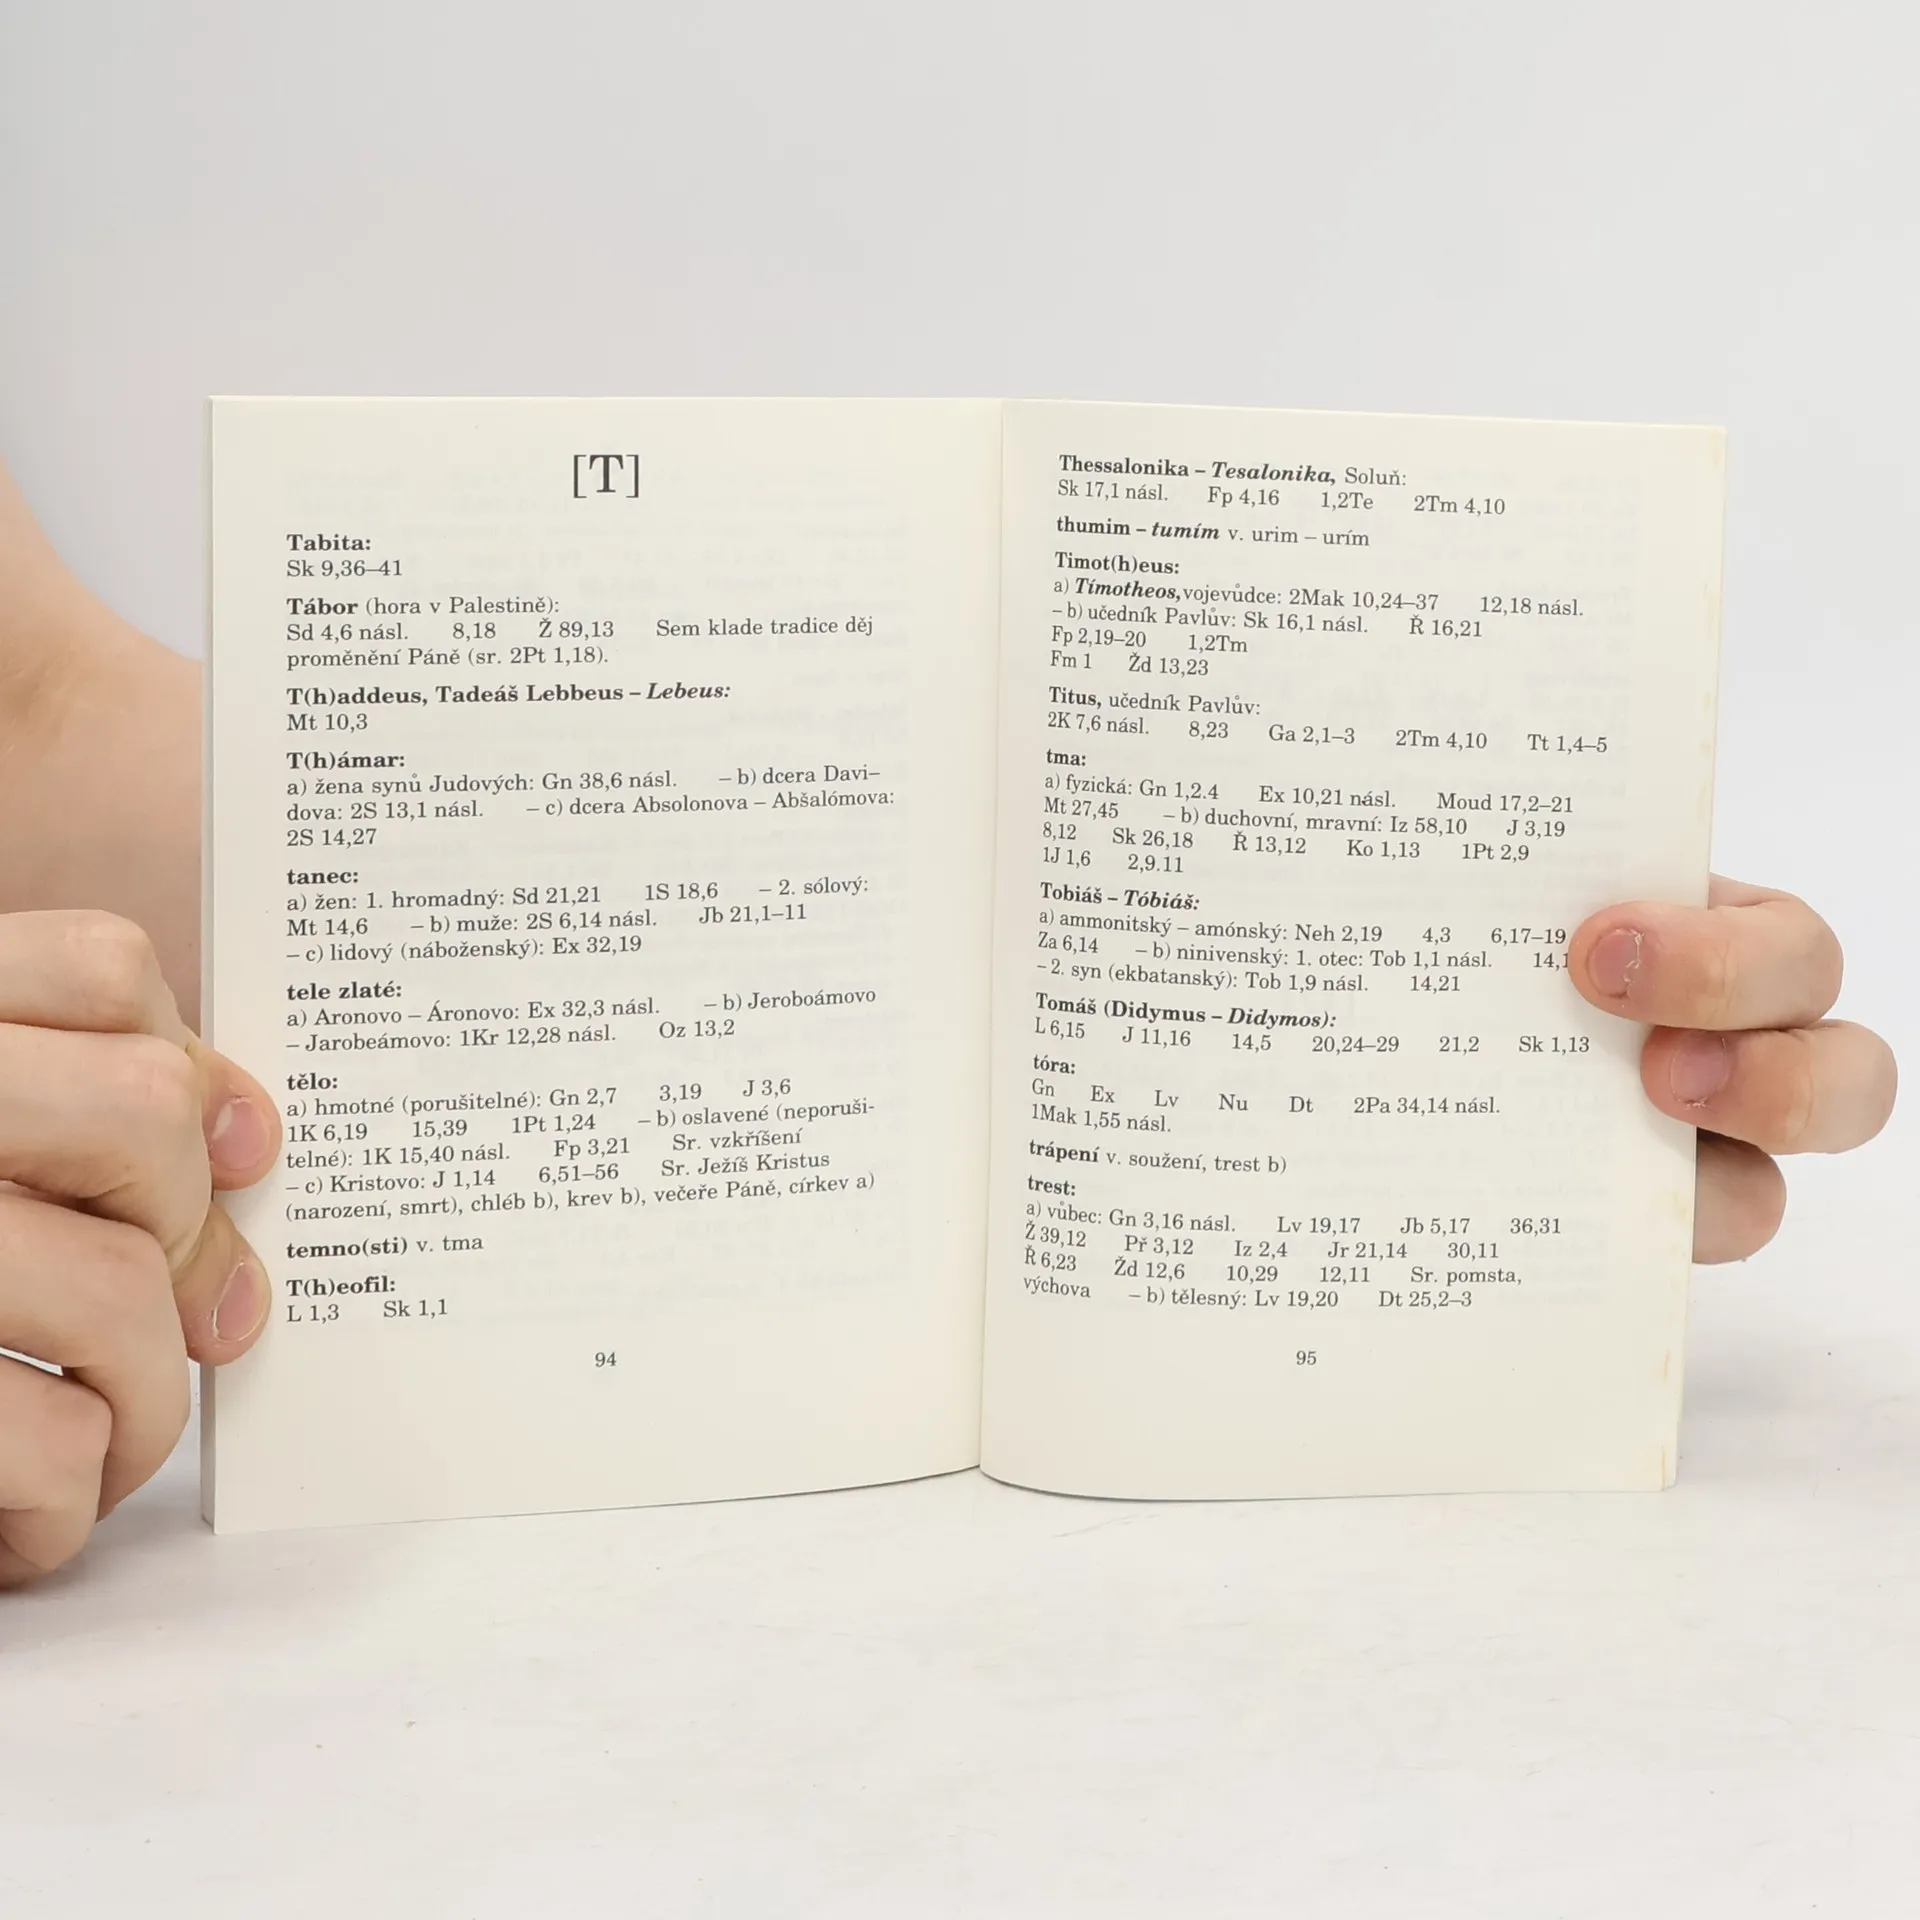 [T]
Tabita:
Sk 9,36–41
Tábor (hora v Palestině):
Sd 4,6 násl. 8,18 Ž 89,13 Sem klade tradice děj
proměnění Páně (sr. 2Pt 1,18).
T(h)addeus, Tadeáš Lebbeus – Lebeus:
Mt 10,3
T(h)ámar:
a) žena synů Judových: Gn 38,6 násl. – b) dcera Davi–
dova: 2S 13,1 násl. – c) dcera Absolonova – Abšalómova:
2S 14,27
tanec:
a) žen: 1. hromadný: Sd 21,21 1S 18,6 – 2. sólový:
Mt 14,6 – b) muže: 2S 6,14 násl. Jb 21,1–11
– c) lidový (náboženský): Ex 32,19
tele zlaté:
a) Aronovo – Áronovo: Ex 32,3 násl. – b) Jeroboámovo
– Jarobeámovo: 1Kr 12,28 násl. Oz 13,2
tělo:
a) hmotné (porušitelné): Gn 2,7 3,19 J 3,6
1K 6,19 15,39 1Pt 1,24 – b) oslavené (neporuši-
telné): 1K 15,40 násl. Fp 3,21 Sr. vzkříšení
– c) Kristovo: J 1,14 6,51–56 Sr. Ježíš Kristus
(narození, smrt), chléb b), krev b), večeře Páně, církev a)
temno(sti) v. tma
T(h)eofil:
L 1,3 Sk 1,1
94
Thessalonika – Tesalonika, Soluň:
Sk 17,1 násl. Fp 4,16 1,2Te 2Tm 4,10
thumim – tumím v. urim – urím
Timot(h)eus:
a) Tímotheos, vojevůdce: 2Mak 10,24–37 12,18 násl.
– b) učedník Pavlův: Sk 16,1 násl. Ř 16,21
Fp 2,19–20 1,2Tm
Fm 1 Žd 13,23
Titus, učedník Pavlův:
2K 7,6 násl. 8,23 Ga 2,1–3 2Tm 4,10 Tt 1,4–5
tma:
a) fyzická: Gn 1,2.4 Ex 10,21 násl. Moud 17,2–21
Mt 27,45 – b) duchovní, mravní: Iz 58,10 J 3,19
8,12 Sk 26,18 Ř 13,12 Ko 1,13 1Pt 2,9
1J 1,6 2,9.11
Tobiáš – Tóbiáš:
a) ammonitský – amónský: Neh 2,19 4,3 6,17–19
Za 6,14 – b) ninivenský: 1. otec: Tob 1,1 násl.
– 2. syn (ekbatanský): Tob 1,9 násl. 14,21
Tomáš (Didymus – Didymos):
L 6,15 J 11,16 14,5 20,24–29 21,2 Sk 1,13
tóra:
Gn Ex Lv Nu Dt 2Pa 34,14 násl.
1Mak 1,55 násl.
trápení v. soužení, trest b)
trest:
a) vůbec: Gn 3,16 násl. Lv 19,17 Jb 5,17 36,31
Ž 39,12 Př 3,12 Iz 2,4 Jr 21,14 30,11
Ř 6,23 Žd 12,6 10,29 12,11 Sr. pomsta,
výchova – b) tělesný: Lv 19,20 Dt 25,2–3
95